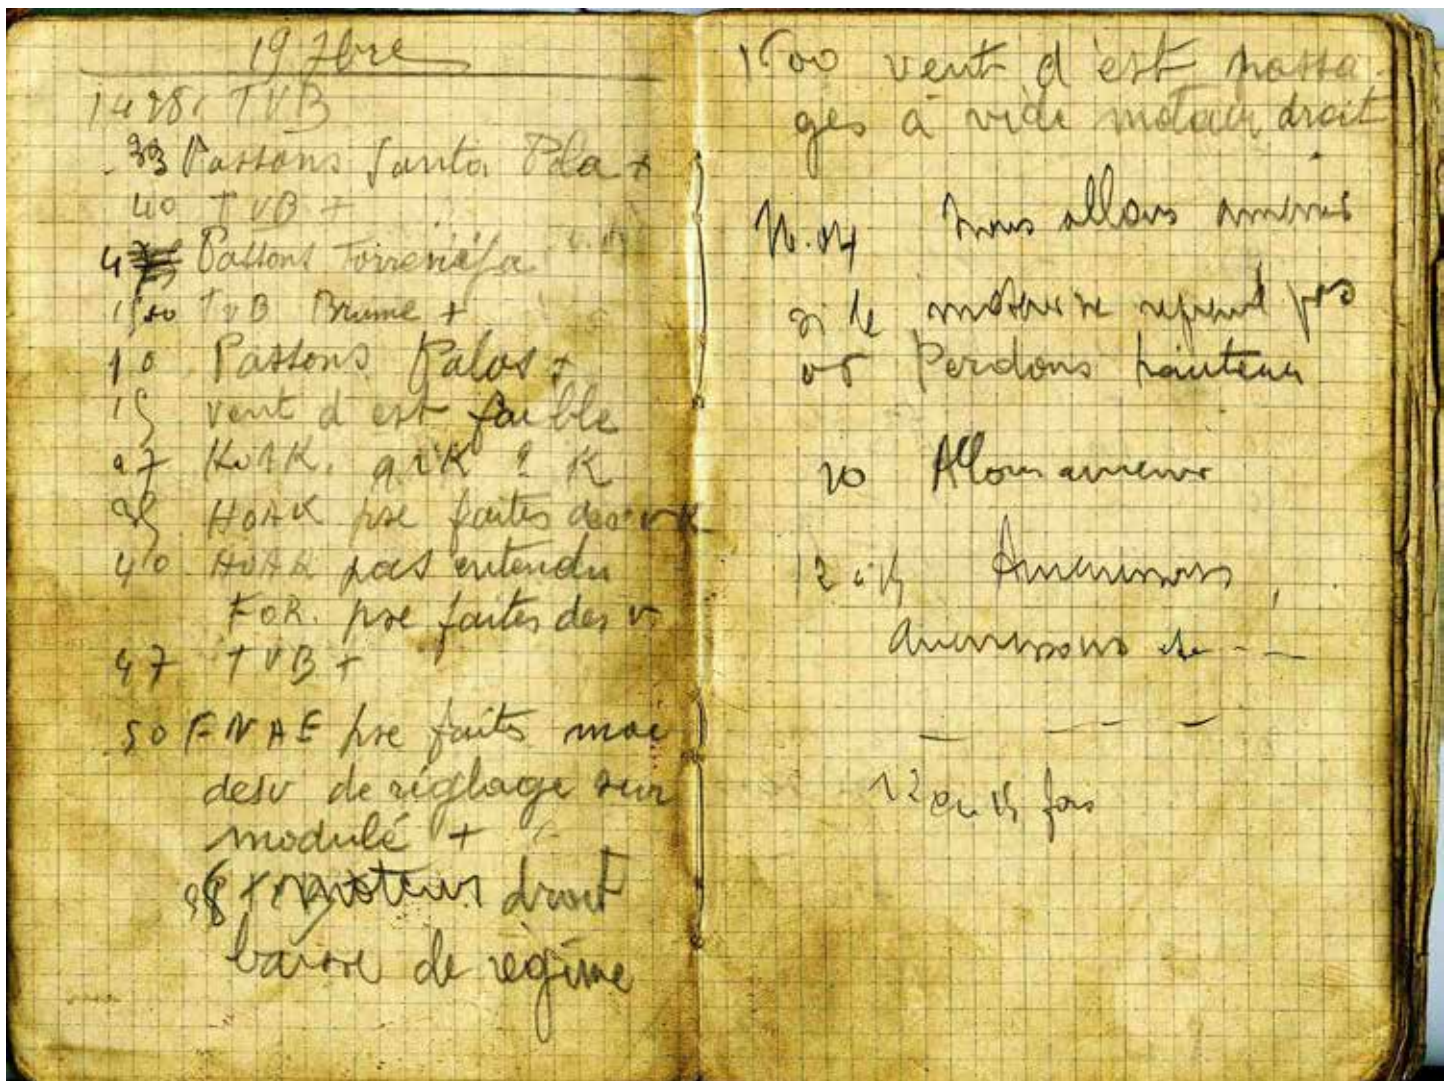 19 7bre
1428 TVB
33 Passons Santa Pola +
40 TVB +
47 Passons Torrevieja
1500 TVB Brume +
10 Passons Palos +
15 vent d'est faible
27 K
35 HOAK pse faites des v K
40 HOAK pas entendu
FOR. pse faites des v
47 TVB +
50 FNAE pse faites moi
des v de réglage sur
modulé +
58 moteur droit
baisse de régime
1600 vent d'est passa-
ges à vide moteur droit
16.04 Nous allons amerrir
si le moteur ne reprend pas
05 Perdons hauteur
10 Allons amerrir
12 Amerrissons,
amerrissons
12 fois